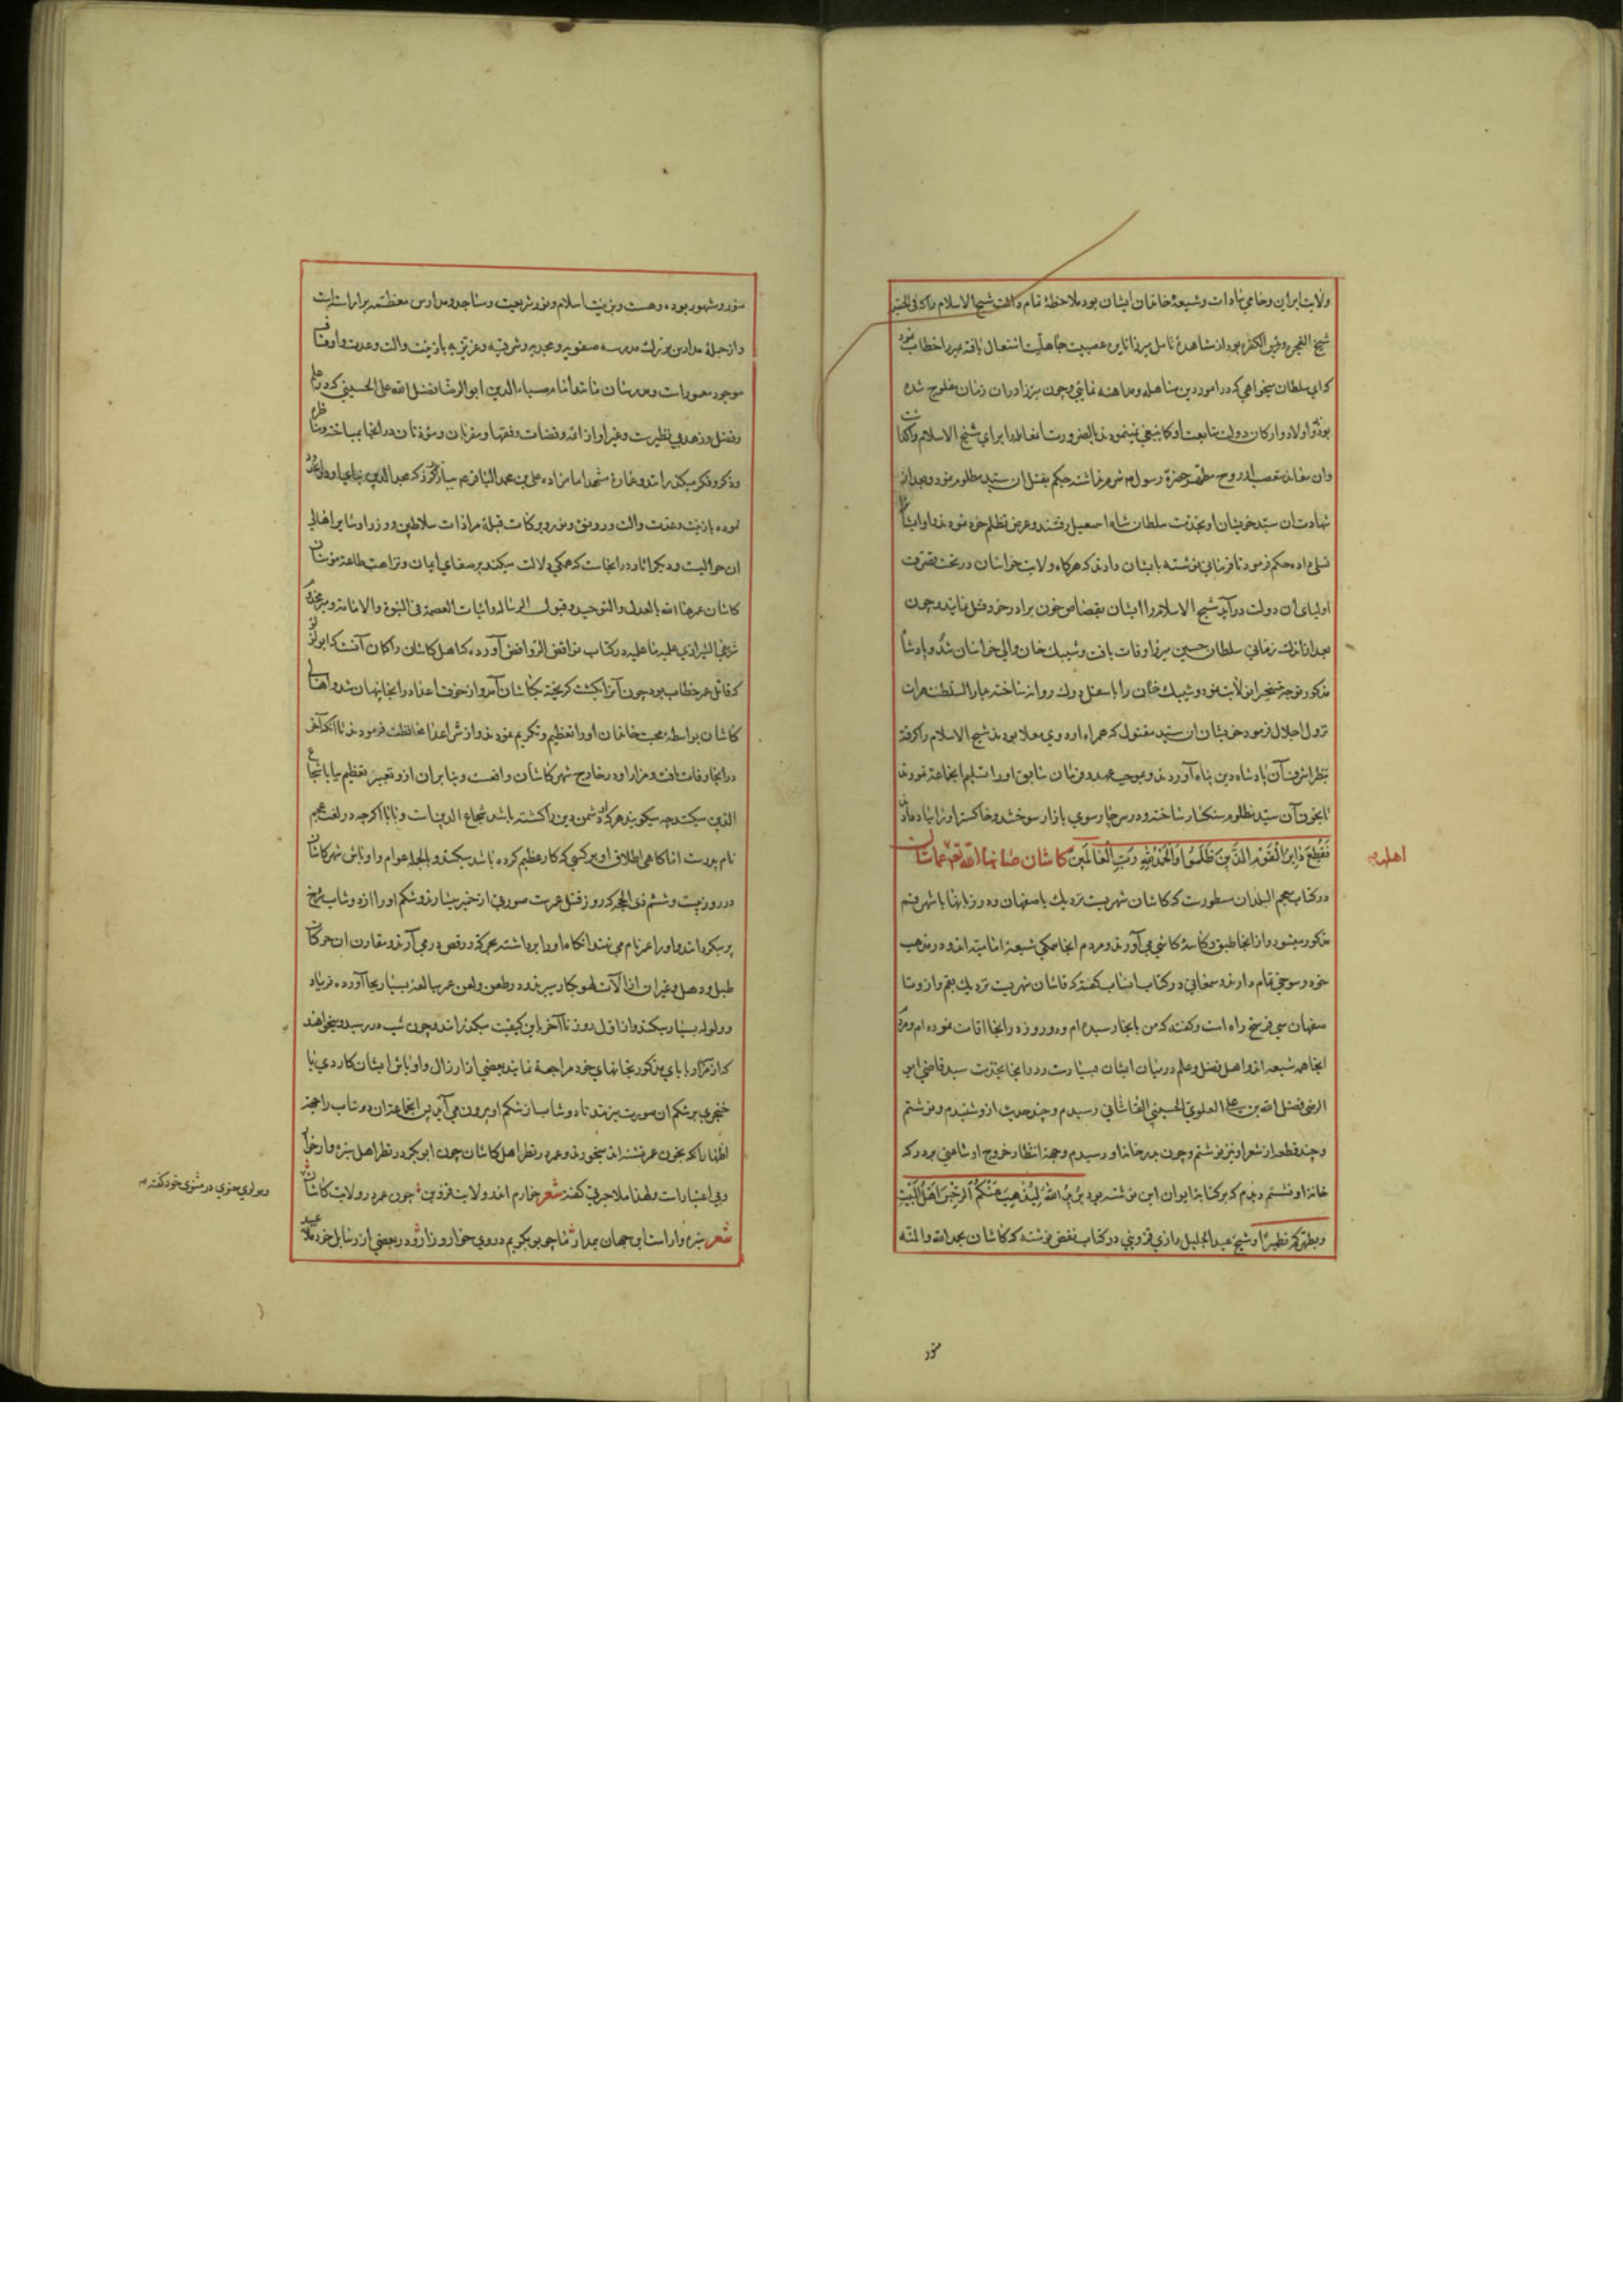 ولایت ایران و حامی سادات و شیعهٔ خاندان ایشان بود ملاحظهٔ تمام داشت شیخ الاسلام را که فی الحقیقه
شیخ الفجره و رئیس الکفره بود از مشاهدهٔ تامل میرزا نایرهٔ عصبیت جاهلیت اشتعال یافته میرزا خطاب نمود
که ای سلطان میخواهی که در امور دین مساهله و مداهنه نمایی و چون میرزا در آن زمان مفلوج شده
بود و اولاد و ارکان دولت متابعت او کما ینبغی نمینمودند بالضرورت
وان معاند متعصب از روح مطهر حضرة رسول شرم نداشته حکم بقتل ان سید مظلوم نمود و بعد از
شهادت ان سید خویشان او بخدمت سلطان شاه اسمعیل رفتند و عرض تظلم خود نمودند و او ایشانرا
تسلی داده حکم فرمود تا فرمانی نوشته بایشان دادند که هرگاه ولایت خراسان در تحت تصرف
اولیای آن دولت در آید شیخ الاسلام را ایشان بقصاص خون برادر خود قتل نمایند و چون
بعد از اندک زمانی سلطان حسین میرزا وفات یافت و شیبک خان والی خراسان شد و پادشاه
مذکور توجه تسخیر ان ولایت نمود و شیبک خان را باسفل درک روانه ساخته بدار السلطنه هرات
نزول اجلال فرمود خویشان ان سید مقتول که همراه اردوی معلا بودند شیخ الاسلام را گرفته
بنظر اشرف آن پادشاه دین پناه آوردند و بموجب عهد و فرمان سابق او را تسلیم انجماعة نمودند
تا بخون آن سید مظلوم سنکسار ساخته و در سر چارسوی بازار سوختند و خاکستر او را بباد دادند
فقطع دابر القوم الذین ظلموا والحمد لله رب العالمین کاشان صانها الله تعالی
اهلها
در کتاب معجم البلدان مسطورست که کاشان شهریست نزدیک باصفهان و در زبانها با شهر قم
مذکور میشود و از انجا طبق و کاسهٔ کاشی می آورند و مردم انجا همگی شیعهٔ امامیه اند و در مذهب
خود رسوخی تمام دارند و سمعانی در کتاب انساب گفته که قاشان شهریست نزدیک بقم و از و تا
صفهان سی فرسخ راه است و گفته که من بانجا رسیده ام و دو روز در انجا اقامت نموده ام و مردم
انجا همه شیعه اند و اهل فضل و علم در میان ایشان بسیارست و در انجا بخدمت سید قاضی ابو
الرضی فضل الله بن علی العلوی الحسینی القاشانی رسیدم و چند حدیث ازو شنیدم و نوشتم
و چند قطعه از شعر او نیز نوشتم و چون بدر خانه او رسیدم و بجهة انتظار خروج او ساعتی بر در که
خانه او نشستم دیدم که بر کتابهٔ ایوان این نوشته بود یرید الله لیذهب عنکم الرجس اهل البیت
و یطهرکم تطهیرا و شیخ عبد الجلیل رازی قزوینی در کتاب نقض نوشته که کاشان بحمد الله والمنه
منور
منور و مشهور بوده و هست و بزینت اسلام و نور شریعت و مساجد و مدارس معظمه بر آراسته است
و از جملهٔ مدارس بزرک مدرسه صفویه و مجدیه و شرفیه و عزیزیه با زینت و الت و عدت و اوقاف
موجود معمورست و مدرسان مانند امام ضیاء الدین ابو الرضا فضل الله علی الحسینی که در علم
و فضل و زهد بی نظیرست و غیر او از ائمه و قضات و فقها و مقریان و مؤذنان در انجا
و ذکر و فکر میکذرانند و عمارة مشهد امامزاده علی بن محمد الباقر عم ببارکرز که مجد الدین بنای او داده
بوده با زینت و عدت و الت و رونق و نور و برکات قبلهٔ مرادات سلاطین و وزرا و سایر اهالی
ان حوالیست و دیگر اثار در انجاست که همگی دلالت میکند بر صفای ایمان و نزاهت طاعة مؤمنان
کاشان عمرها الله بالعدل و التوحید و قبول الرسالة و اثبات العصمة فی النبوة و الامامة و میرمخدوم
شریفی الشیرازی علیه ما علیه در کتاب نواقض الروافض آورده که اهل کاشان را گمان آنست که ابو لؤلؤ
که قاتل عمر خطاب بود چون آنرا بکشت گریخته بکاشان آمد و از خوف اعدا در انجا پنهان شد و اهالی
کاشان بواسطه محبت خاندان او را تعظیم و تکریم نمودند و از شر اعدا محافظت فرمودند تا انکه آخر
در انجا وفات یافت و مزار او در خارج شهر کاشان واقعست و بنا بران ازو تعبیر تعظیم ببابا شجاع
الدین میکنند چه میگویند هر که او دشمن دین را کشته باشد شجاع الدین است و بابا اگرچه در لغت عجم
نام پدرست اما گاهی اطلاق او بر کسی که کار عظیم کرده باشد میکنند و بالجمله عوام و اوباش شهر کاشان
در روز بیست و ششم ذی الحجه که روز قتل عمرست صورتی از خمیر میسازند و شکم او را از دوشاب سرخ
پر میکردانند و او را عمر نام می نهند انکاه او را برداشته بحرکة و رقص در می آرند و مقارن ان حرکات
طبل و دهل و غیر ان از آلات لهو بکار میبرند و در طعن و لعن عمر مبالغهٔ بسیار بجا آورده فریاد
و ولوله بسیار میکنند و از اول روز تا آخر باین کیفیت میگذرانند و چون شب در رسد و میخواهند
که از مزار بابای مذکور بخانهای خود مراجعة نمایند بعضی از ارذال و اوباش ایشان کاردی یا
خنجری بر شکم ان صورت میزنند تا دوشاب از شکم او بیرون می آید پس انجماعة ان دوشاب را بجهة
اظهار آنکه بخون عمر تشنه اند میخورند و عمر در نظر اهل کاشان چون ابو بکر در نظر اهل سبزوار خوار
و بی اعتبارست و لهذا ملا حیرتی گفته شعر خارم اندر ولایت قزوین چون عمر در ولایت کاشان
و مولوی معنوی در مثنوی خود گفته
شعر سبزوار است این جهان بیمدار ما چو بو بکریم در وی خوار و زار و در بعضی از رسایل خود ملا عبید